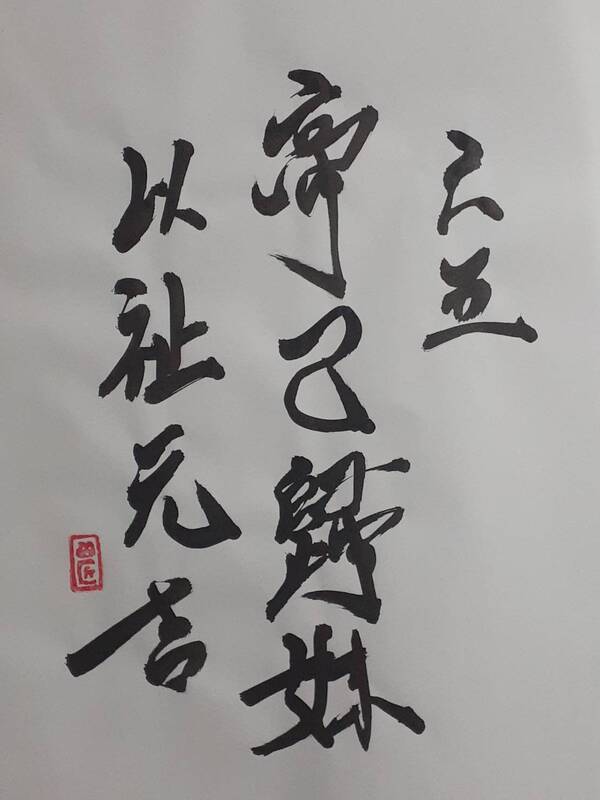 六五
帝乙歸妹
以祉元吉